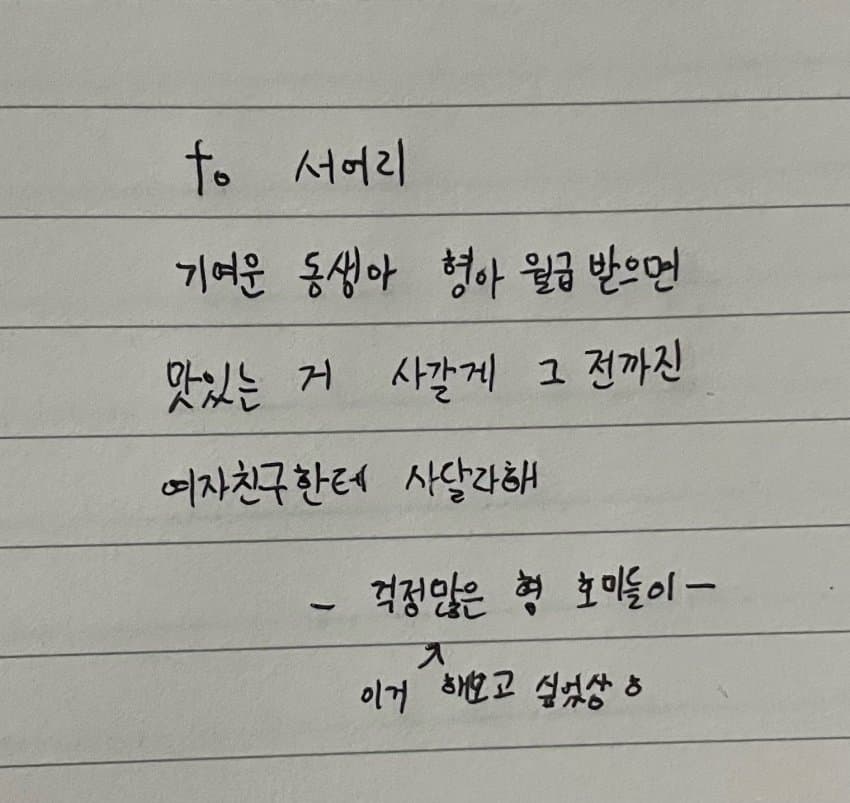 to 서어리
기여운 동생아 형아 월급 받으면
맛있는 거 사갈게 그 전까진
여자친구한테 사달라해
- 걱정많은 형 호미들이 -
↗
이거 해보고 싶었상 ㅎ